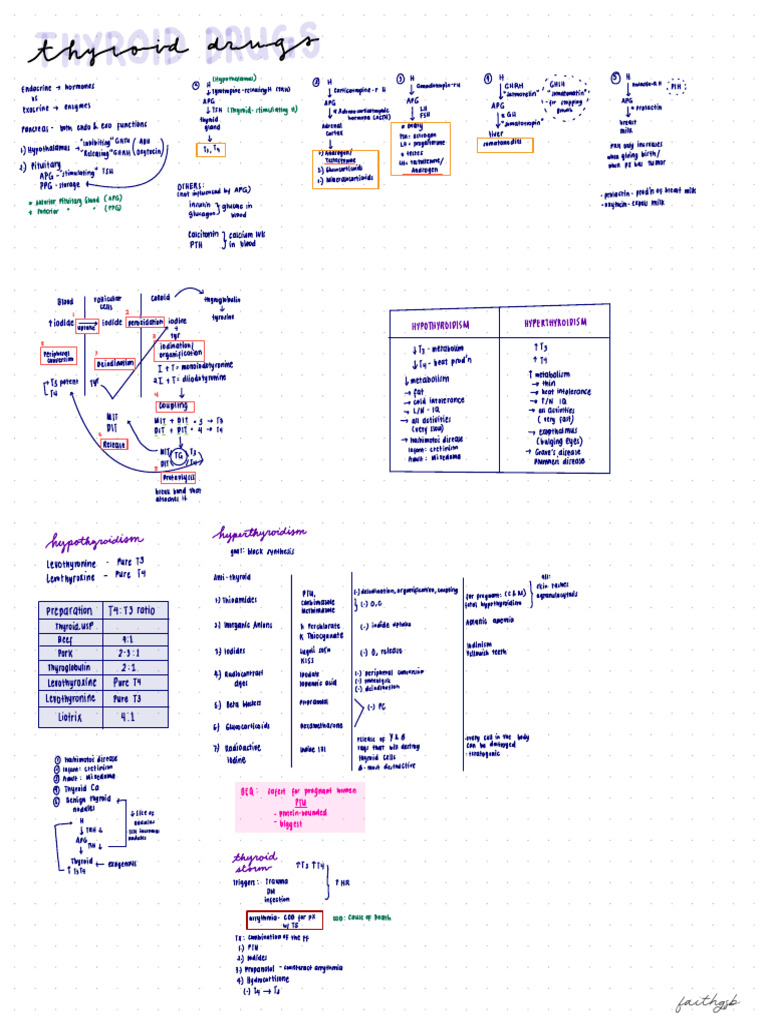 THYROID DRUGS
thyroid drugs
Endocrine → hormones
vs
Exocrine → enzymes
Pancreas - both endo & exo functions
1) Hypothalamus → "inhibiting" GHIH
→ "Releasing" GHRH
(ADH
Oxytocin)
2) Pituitary
APG - "stimulating" TSH
PPG - storage
* Anterior Pituitary Gland (APG)
+ Posterior " " (PPG)
① H (Hypothalamus)
↓ Thyrotropin-releasing H (TRH)
APG
↓ TSH (Thyroid-stimulating H)
thyroid
gland
↓
T3, T4
OTHERS:
(not influenced by APG)
insulin
glucagon
} glucose in
blood
Calcitonin
PTH
} calcium lvls
in blood
② H
↓ Corticotropin-r H
APG
↓ Adrenocorticotrophic
hormone (ACTH)
Adrenal
cortex
↓
1) Androgen/
Testosterone
2) Glucocorticoids
3) Mineralocorticoids
③ H
↓ Gonadotropin-rH
APG
↓ LH
FSH
* ovary
FSH = estrogen
LH = progesterone
* testes
LH = testosterone/
Androgen
④ H
↓ GHRH
"somatotropin"
GHIH
"somatostatin"
- for stopping
growth
APG
↓ GH
"somatotropin"
liver
somatomedins
⑤ H
PIH
APG
↓ Prolactin
breast
milk
PRH only increases
when giving birth/
when px has tumor
- prolactin - prod'n of breast milk
- oxytocin - expels milk
Blood
Follicular
cells
Colloid
thyroglobulin
↓
tyrosine
1
↑ iodide
uptake
iodide
2
peroxidation
iodine
+
tyr
3
iodination/
organification
I + T = monoiodotyronine
2I + T = diiodotyronine
8
Peripheral
conversion
T3 potent
T4
7
Deiodination
Tyr
MIT
DIT
4
Coupling
MIT + DIT = 3 → T3
DIT + DIT = 4 → T4
6
Release
MIT
DIT
TG
T3
T4
5
Proteolysis
break bond that
attaches it
HYPOTHYROIDISM
HYPERTHYROIDISM
↓ T3 - metabolism
↓ T4 - heat prod'n
↓ metabolism
→ fat
→ cold intolerance
→ L/N - IQ
→ all activities
(very slow)
→ hashimotos disease
Infant: cretinism
Adult: Mixedema
↑ T3
↑ T4
↑ metabolism
→ thin
→ heat intolerance
→ T/N IQ
→ all activities
(very fast)
→ exopthalmus
(bulging eyes)
→ Grave's disease
Plummers disease
hypothyroidism
Levothyronine - Pure T3
Levothyroxine - Pure T4
Preparation T4:T3 ratio
Thyroid, USP
Beef 4:1
Pork 2-3:1
Thyroglobulin 2:1
Levothyroxine Pure T4
Levothyronine Pure T3
Liotrix 4:1
① Hashimotos disease
② Infant: cretinism
③ Adult: Mixedema
④ Thyroid Ca
⑤ Benign thyroid
nodules
H
↓ TRH ↓
APG
↓ TSH ↓
Thyroid ← exogenous
↑ T3 T4
↓ size of
nodules
hyperthyroidism
goal: block synthesis
Anti-thyroid
1) Thioamides
PTU,
Carbimazole
Methimazole
(-) deiodination, organification, coupling
} (-) O, C
for pregnant: (C & M)
fetal hypothyroidism
all:
skin rashes
agranulocytosis
2) Inorganic Anions
K Perchlorate
K Thiocyanate
(-) iodide uptake
Aplastic anemia
3) Iodides
Lugol soln
KISS
(-) O, release
Iodinism
Yellowish teeth
4) Radiocontrast
dyes
Ipodate
Iopanoic acid
(-) peripheral conversion
(-) deiodination
5) Beta blockers
Propranolol
(-) PC
6) Glucocorticoids
Dexamethasone
7) Radioactive
Iodine
Iodine 131
release of γ & β
rays that will destroy
thyroid cells
β - most destructive
every cell in the body
can be damaged
- teratogenic
BEQ: Safest for pregnant woman
PTU
- protein-bounded
- biggest
thyroid
storm
↑T3 ↑T4
Triggers: Trauma
DM
infection
} ↑ HR
arrythmia - COD for px
w/ TS
COD: Cause of Death
Tx: combination of the ff
1) PTU
2) Iodides
3) Propanolol - counteract arrythmia
4) Hydrocortisone
(-) T4 → T3
faithgsb